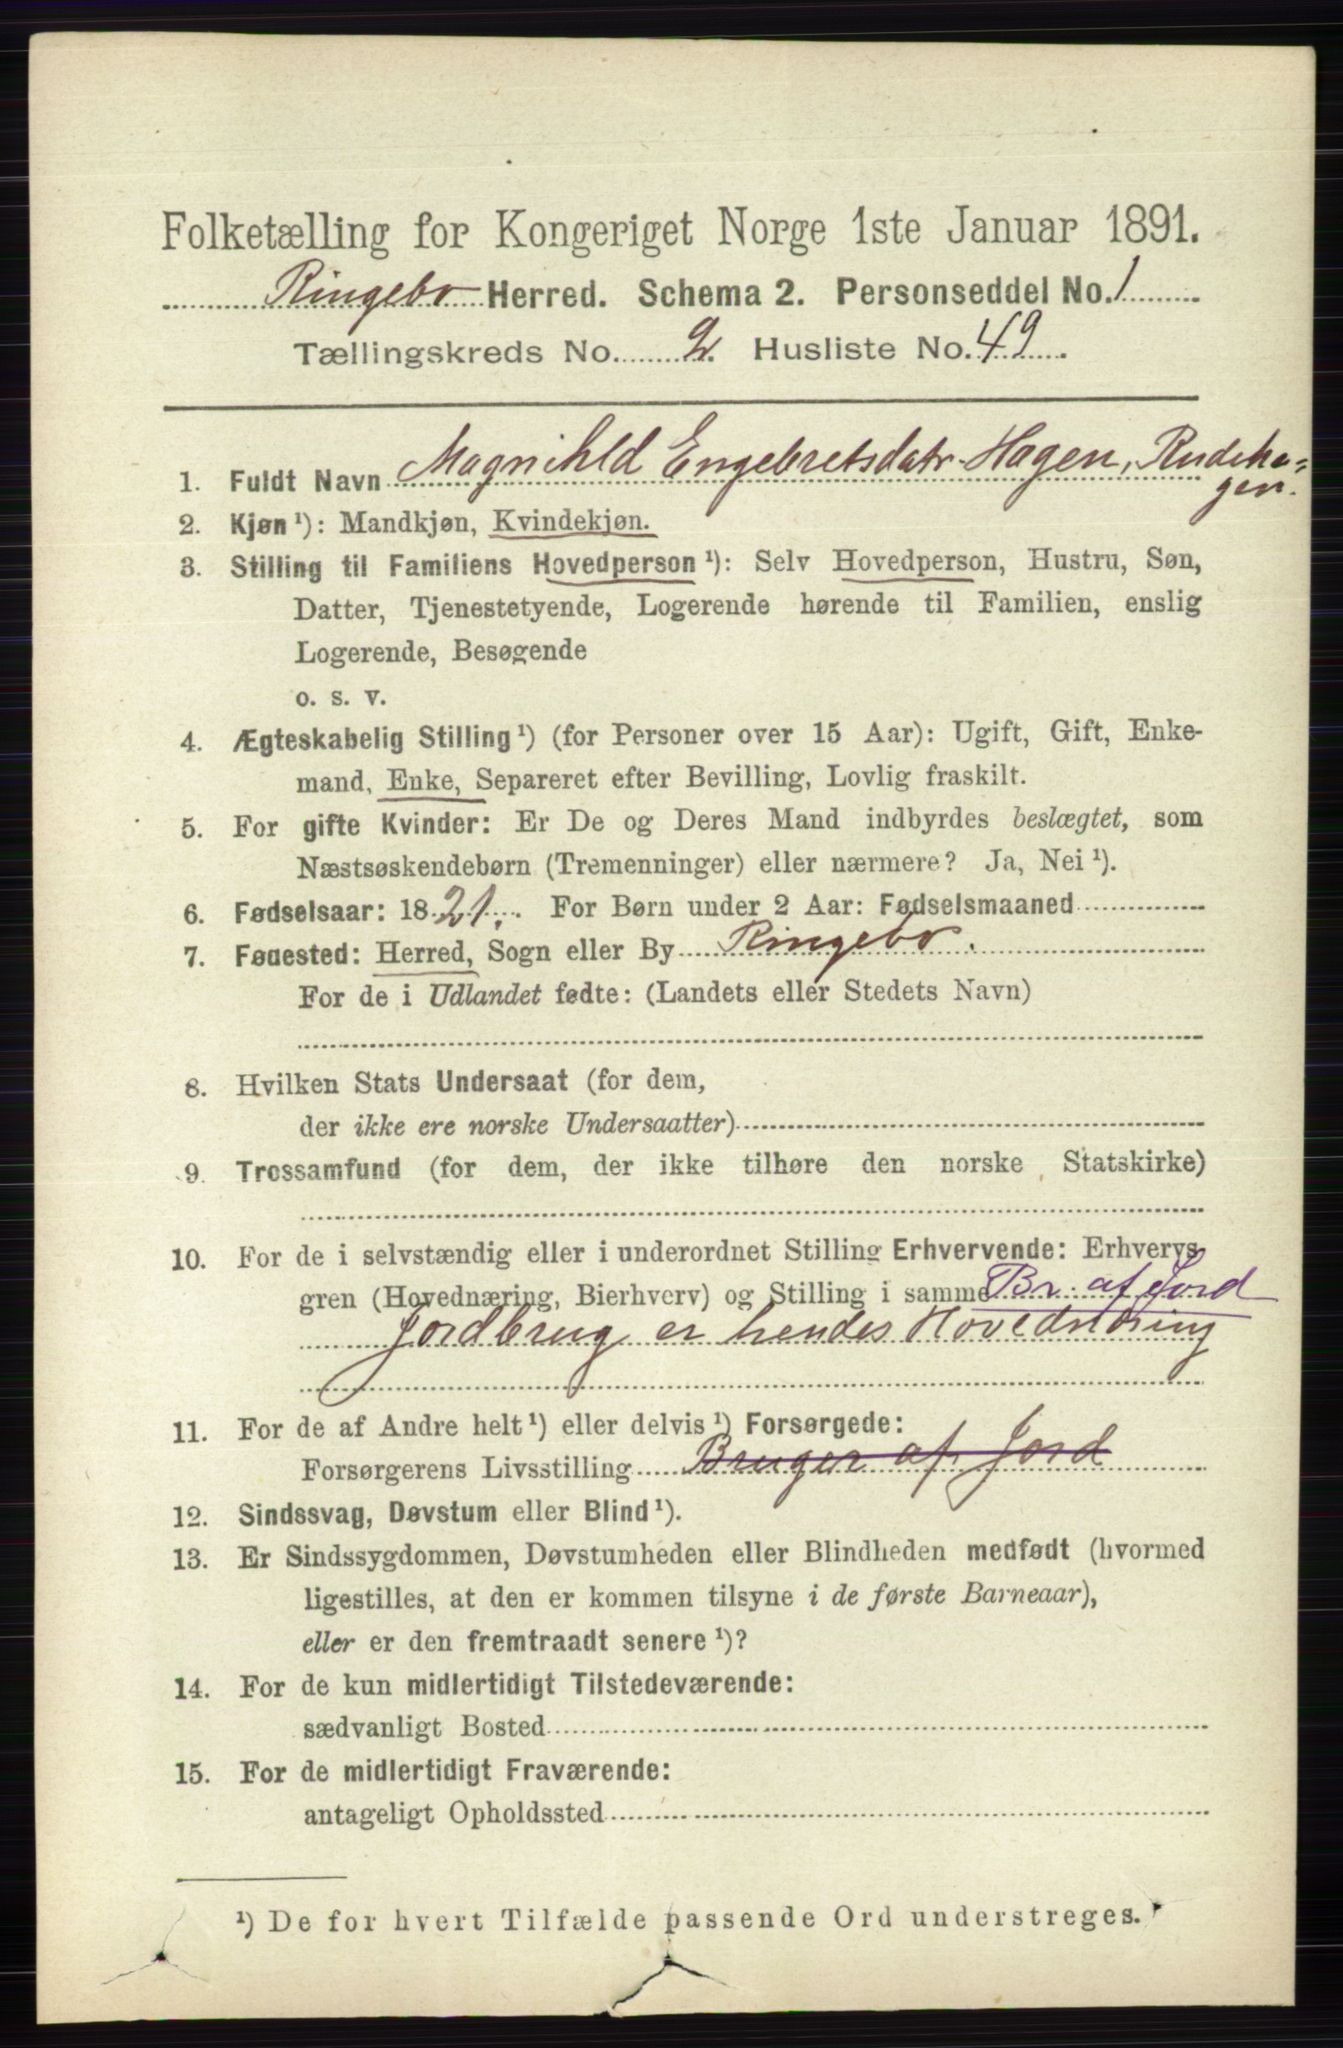 Folketælling for Kongeriget Norge 1ste Januar 1891.
Ringebo Herred. Schema 2. Personseddel No. 1
Tællingskreds No. 2. Husliste No. 49.
1. Fuldt Navn Magnihld Engebretsdatr. Hagen, Rudeha-
gen.
2. Kjøn ¹): Mandkjøn, Kvindekjøn.
3. Stilling til Familiens Hovedperson ¹): Selv Hovedperson, Hustru, Søn,
Datter, Tjenestetyende, Logerende hørende til Familien, enslig
Logerende, Besøgende
o. s. v.
4. Ægteskabelig Stilling ¹) (for Personer over 15 Aar): Ugift, Gift, Enke-
mand, Enke, Separeret efter Bevilling, Lovlig fraskilt.
5. For gifte Kvinder: Er De og Deres Mand indbyrdes beslægtet, som
Næstsøskendebørn (Tremenninger) eller nærmere? Ja, Nei ¹).
6. Fødselsaar: 1821. For Børn under 2 Aar: Fødselsmaaned
7. Fødested: Herred, Sogn eller By Ringebo.
For de i Udlandet fødte: (Landets eller Stedets Navn)
8. Hvilken Stats Undersaat (for dem,
der ikke ere norske Undersaatter)
9. Trossamfund (for dem, der ikke tilhøre den norske Statskirke)
10. For de i selvstændig eller i underordnet Stilling Erhvervende: Erhvervs-
gren (Hovednæring, Bierhverv) og Stilling i samme Br. af Jord
Jordbrug er hendes Hovednæring
11. For de af Andre helt ¹) eller delvis ¹) Forsørgede:
Forsørgerens Livsstilling Bruger af Jord
12. Sindssvag, Døvstum eller Blind ¹).
13. Er Sindssygdommen, Døvstumheden eller Blindheden medfødt (hvormed
ligestilles, at den er kommen tilsyne i de første Barneaar),
eller er den fremtraadt senere ¹)?
14. For de kun midlertidigt Tilstedeværende:
sædvanligt Bosted
15. For de midlertidigt Fraværende:
antageligt Opholdssted
¹) De for hvert Tilfælde passende Ord understreges.